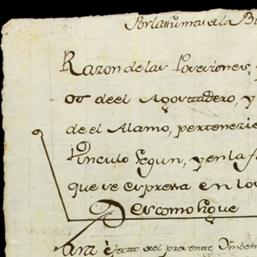 Razon de las Posesiones, y
os de el Agostadero, y
de el Alamo, pertenezie
Vinculo segun, y en la f
que se espresa en los
Es como sigue
Para efecto del presente Imben